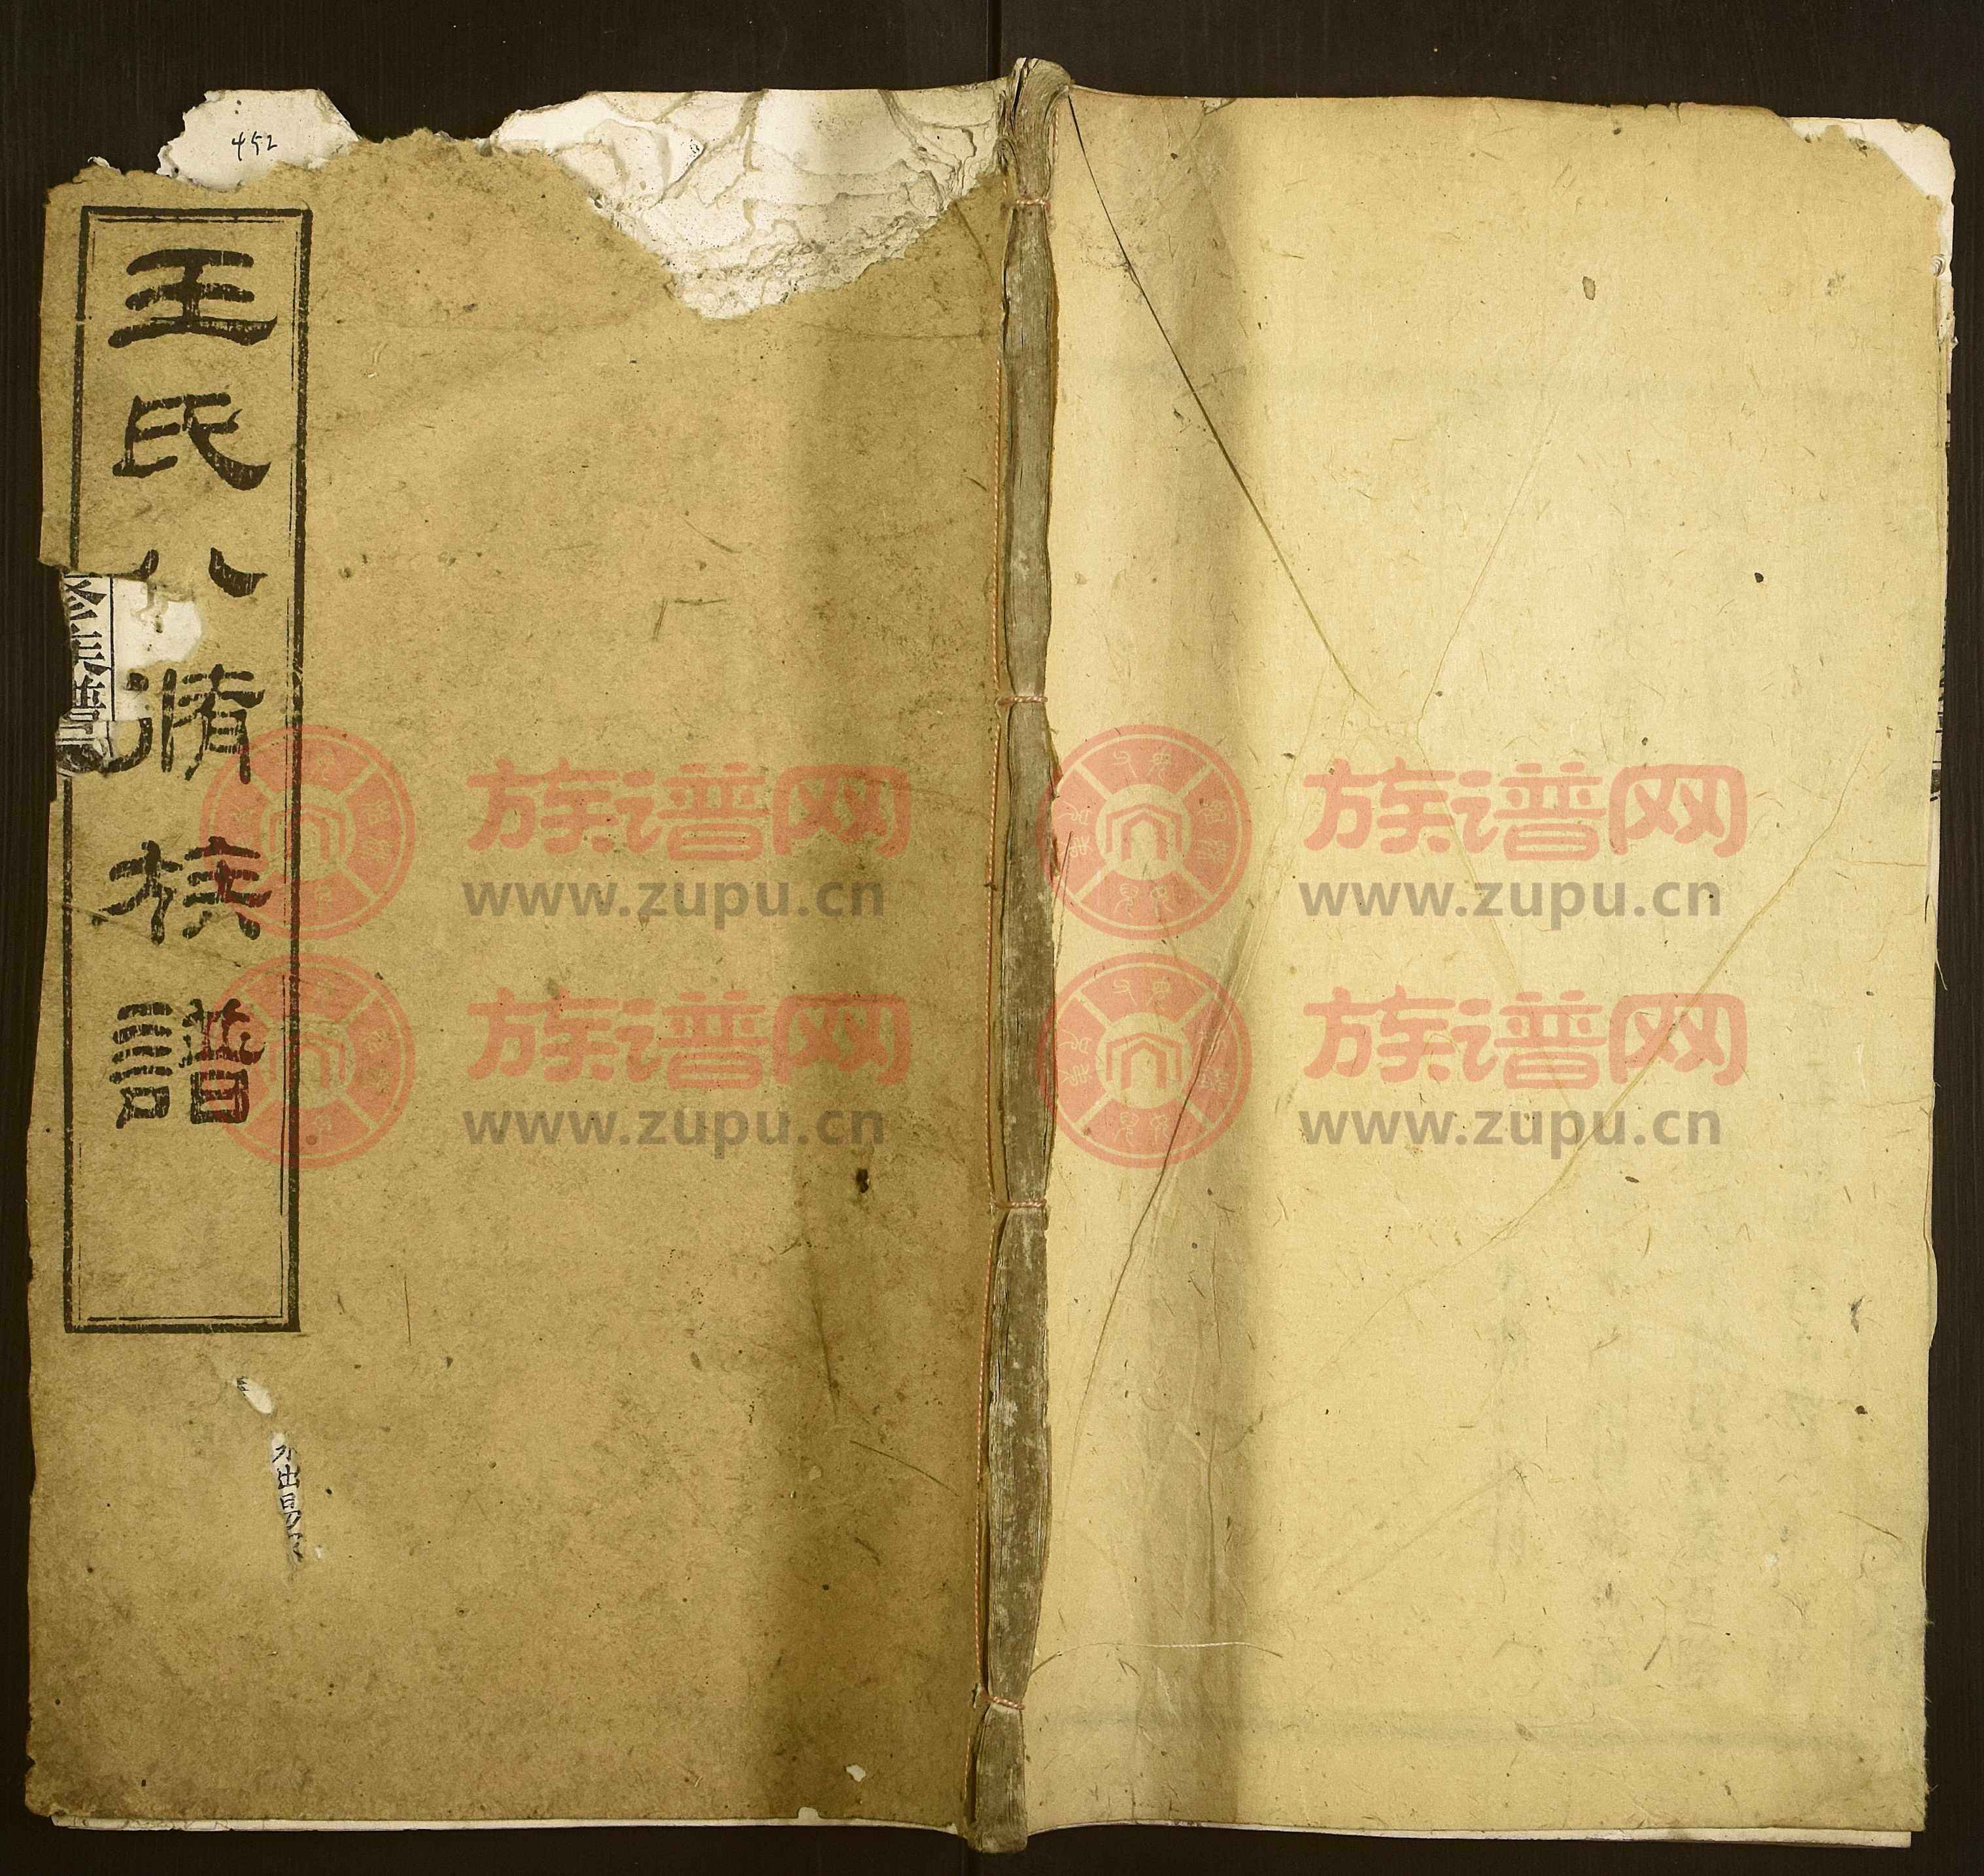 452
王氏八脩族譜
出易
族谱网
www.zupu.cn
族谱网
www.zupu.cn
族谱网
www.zupu.cn
族谱网
www.zupu.cn